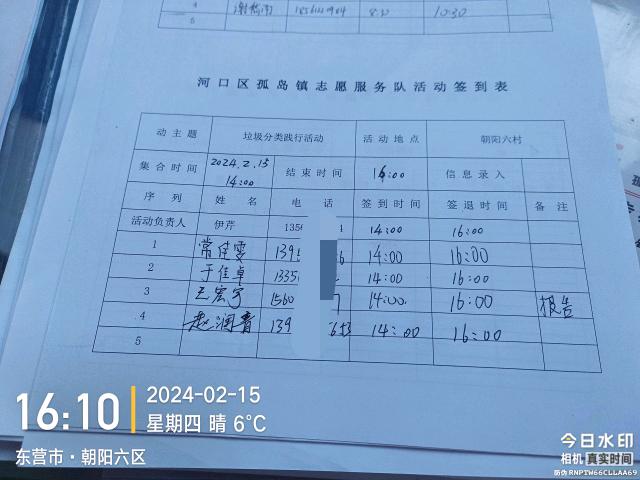 4 8:30 10:30
5
河口区孤岛镇志愿服务队活动签到表
动主题 垃圾分类践行活动 活动地点 朝阳六村
集合时间 2024.2.15 14:00 结束时间 16:00 信息录入
序列 姓名 电话 签到时间 签退时间 备注
活动负责人 伊芹 135 4 14:00 16:00
1 常佳雯 139 6 14:00 16:00
2 于佳卓 1335 14:00 16:00
3 王宏宇 1560 7 14:00 16:00 报告
4 赵润青 139 14:00 16:00
5
16:10 2024-02-15
星期四 晴 6°C
东营市·朝阳六区
今日水印
相机 真实时间
防伪 RNPTW66CLLAA69